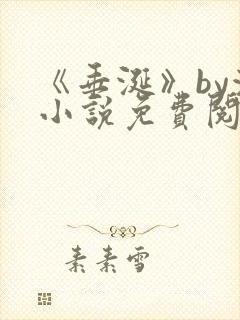 《垂涎》by
小說免費閱
素素雪